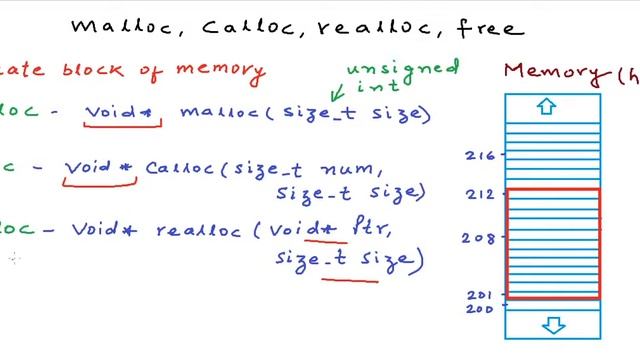 malloc, calloc, realloc, free
ate block of memory
unsigned int
Memory (h
loc - void* malloc(size_t size)
c - void* calloc(size_t num,
size_t size)
loc - void* realloc (void* Ptr,
size_t size)
216
212
208
201
200